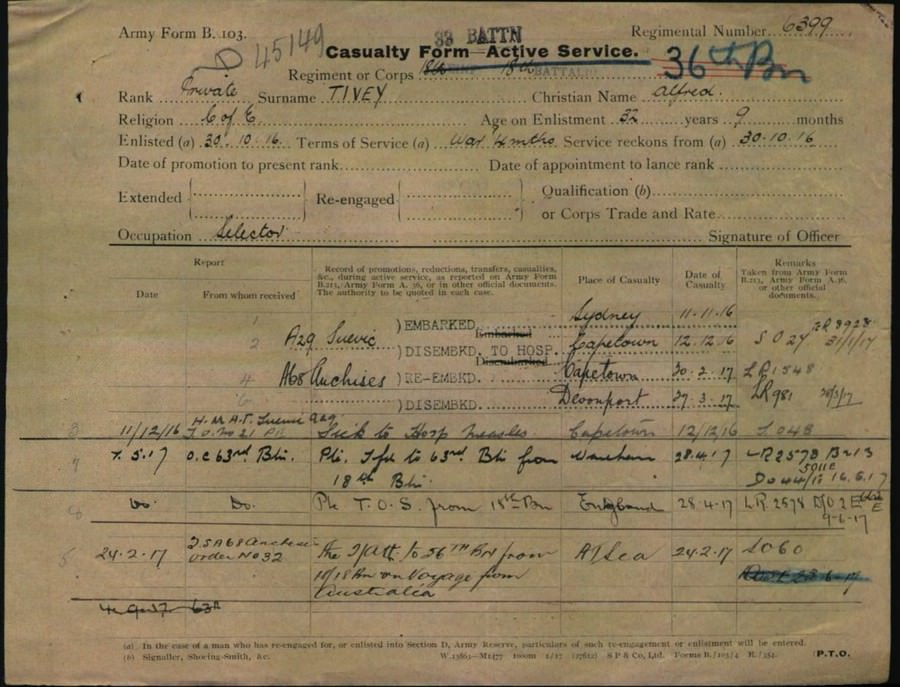 Army Form B. 103.
D 45149
33 BATTN
Regimental Number 6399
Casualty Form—Active Service.
Regiment or Corps 18th BATTALION
36th Bn
Rank Private Surname TIVEY Christian Name Alfred.
Religion C of E Age on Enlistment 32 years 9 months
Enlisted (a) 30.10.16 Terms of Service (a) War 4 mths Service reckons from (a) 30-10-16
Date of promotion to present rank Date of appointment to lance rank
Extended Re-engaged Qualification (b)
or Corps Trade and Rate
Occupation Selector Signature of Officer
Report
Date From whom received
Record of promotions, reductions, transfers, casualties, &c., during active service, as reported on Army Form B.213, Army Form A. 36, or in other official documents. The authority to be quoted in each case.
Place of Casualty
Date of Casualty
Remarks
Taken from Army Form B.213, Army Form A.36, or other official documents.
1 )EMBARKED Sydney 11-11-16
Embarked
2 A29 Suevic )DISEMBKD. TO HOSP. Capetown 12.12.16 S O 27 31/1/17
Disembarked
4 A68 Anchises )RE-EMBKD. Capetown 20-2-17 LR 1548
)DISEMBKD. Devonport 27-3-17 LR 981
3 11/12/16 H.M.A.T. Suevic A29 Sick to Hosp Measles Capetown 12/12/16 S.048
7 7.5.17 O.C 63rd Btn. Pte. Tfr to 63rd Btn from 18th Btn. Wareham 28.4.17 LR 2578
Do. Do. Pte T.O.S. from 18th Bn England 28-4-17 L.R. 2578
9-6-17
5 24-2-17 A68 Anchises order No 32 to 36TH Bn from 18 Bn on Voyage from Australia At Sea 24.2.17 SO60
63rd
(a) In the case of a man who has re-engaged for, or enlisted into Section D, Army Reserve, particulars of such re-engagement or enlistment will be entered.
(b) Signaller, Shoeing-Smith, &c.
S P & Co, Ltd.
P.T.O.